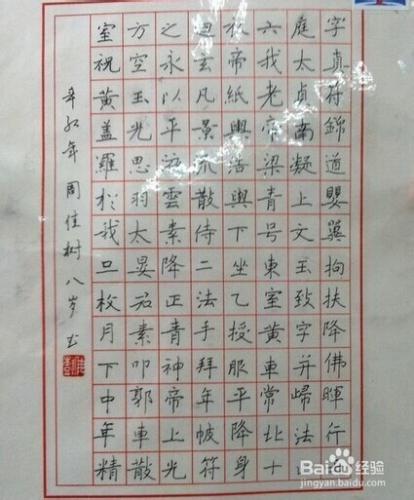 字真符錦道嬰翼拘扶降佛暉行
庭太貞南凝上文玉致字并歸法
六我老帝梁青号東室黄車常北十
帝紙與活與下坐乙授服平降身
玄凡景流散侍二法手拜年帔符
之永以平雲素降正青神帝上光
方空玉光思羽太晏君素叩郭車散
室祝黄盖羅於我旦枚月下中年精
辛卯年 周佳树八岁书
Baidu 经验
jingyan.baidu.com